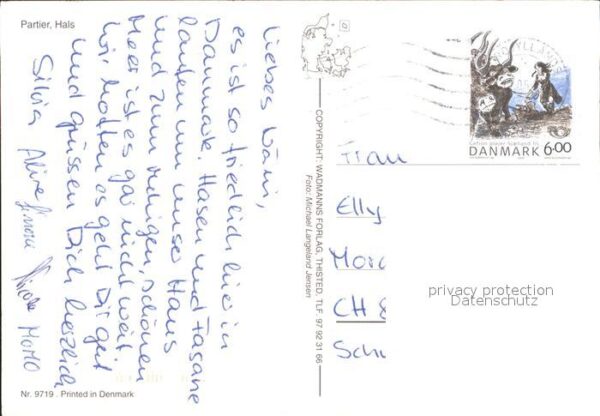 Partier, Hals
Liebes Väni,
es ist so friedlich hier in
Dänmark. Hasen und Fasane
laufen um unser Haus
und zum ruhigen, schönen
Meer ist es gar nicht weit.
Wir hoffen es geht Dir gut
und grüssen Dich herzlich
Silvia Aline Simona Nicole MOMO
Nr. 9719 . Printed in Denmark
COPYRIGHT: WADMANNS FORLAG, THISTED, TLF. 97 92 31 66
Foto: Michael Langeland Jensen
JYLLAND
Gefion pløjer Sjælland fri
DANMARK 6.00
Frau
Elly
CH 8
privacy protection
Datenschutz